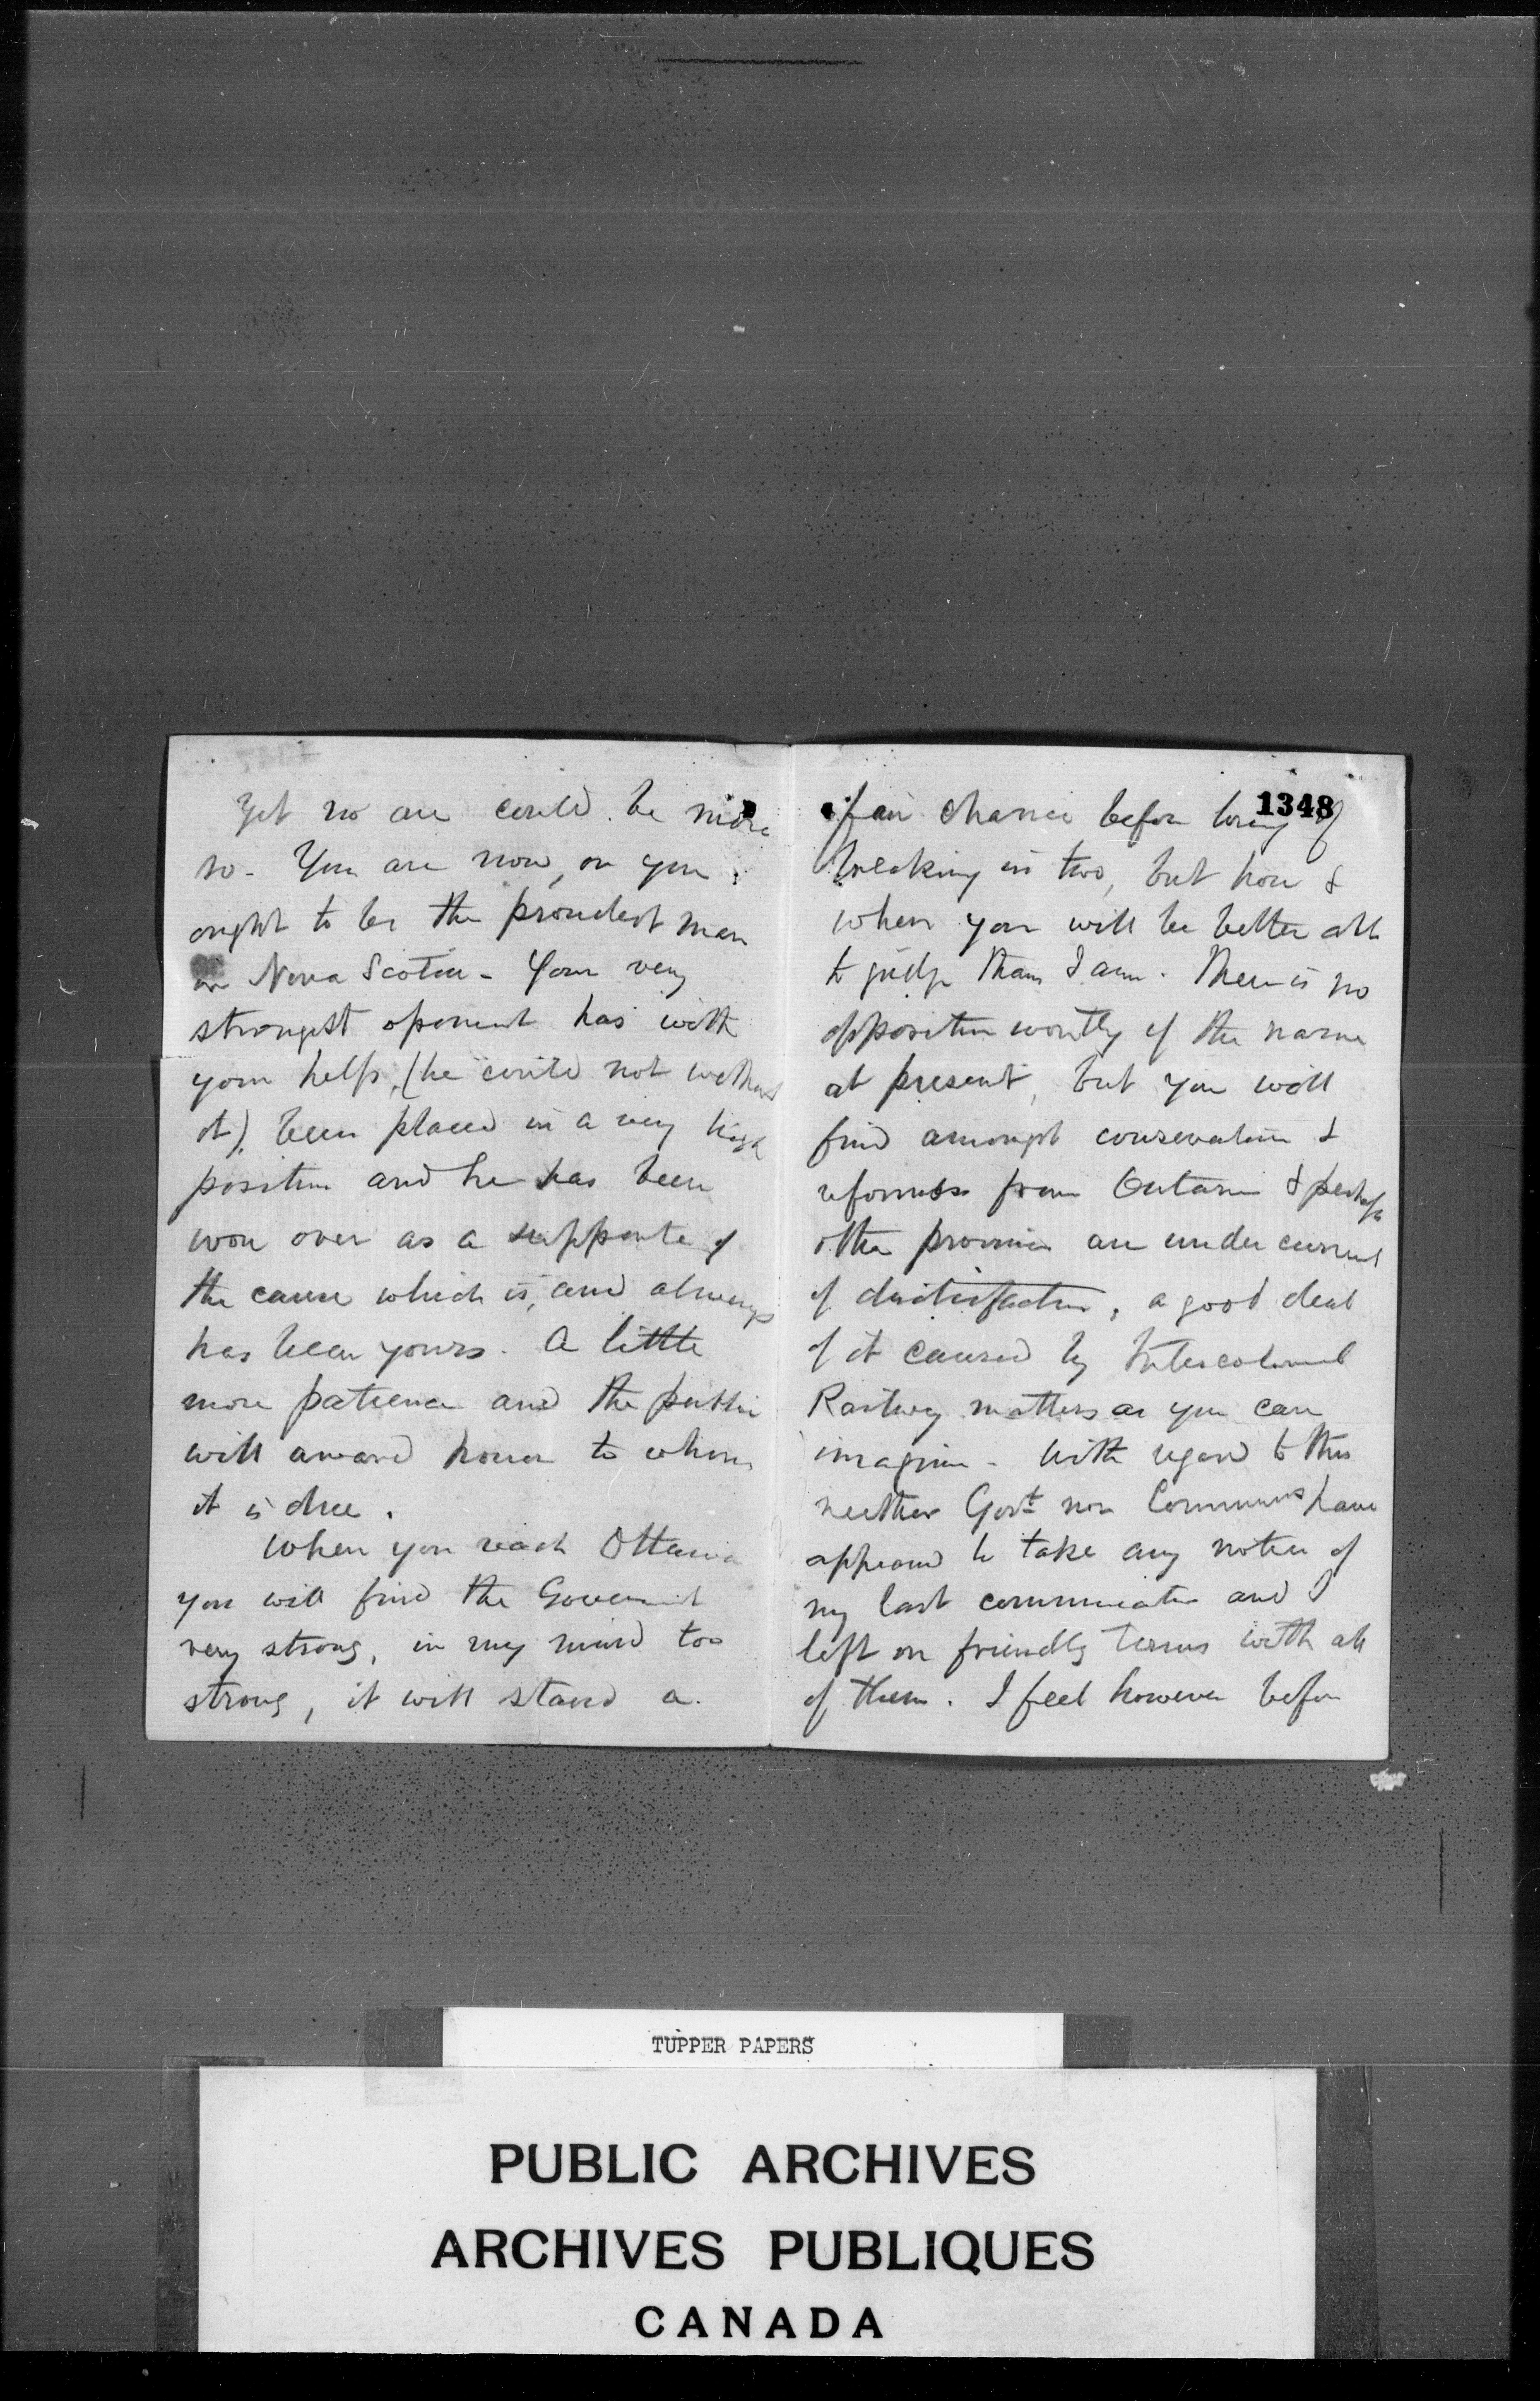 Yet no one could be more
so - You are now, or you
ought to be the proudest man
in Nova Scotia - Your very
strongest oponent has with
your help, (he could not without
it), been placed in a very high
position and he has been
won over as a supporter of
the cause which is, and always
has been yours. A little
more patience and the public
will award honor to whom
it is due.
When you reach Ottawa
you will find the Government
very strong, in my mind too
strong, it will stand a
1348
fair chance before long of
breaking in two, but how &
when you will be better able
to judge than I am. There is no
opposition worthy of the name
at present, but you will
find amongst conservatives &
reformers from Ontario & perhaps
other provinces an under current
of dissatisfaction, a good deal
of it caused by Intercolonial
Railway matters as you can
imagine - With regard to this
neither Govt nor Commrs have
appeared to take any notice of
my last communication and I
left on friendly terms with all
of them. I feel however before
TUPPER PAPERS
PUBLIC ARCHIVES
ARCHIVES PUBLIQUES
CANADA